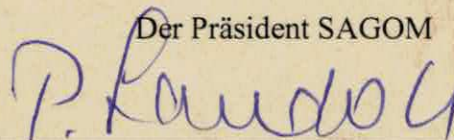 Der Präsident SAGOM
P. Landolt